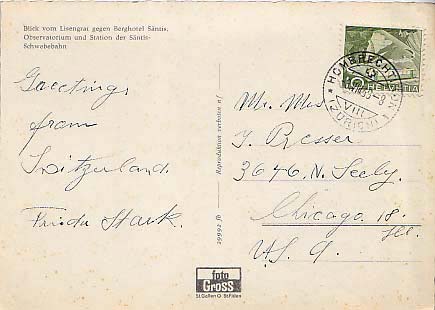 Blick vom Lisengrat gegen Berghotel Säntis,
Observatorium und Station der Säntis-
Schwebebahn
Greetings
from
Switzerland.
Frieda Stark.
29992 fb
Reproduktion verboten
foto
GROSS
St.Gallen O St.Fiden
HELVETIA
HOMBRECHTIKON
(ZÜRICH)
VIII
Mr. Mrs
J. Presser
3646. N. Seely.
Chicago 18.
Ill.
U.S. A.